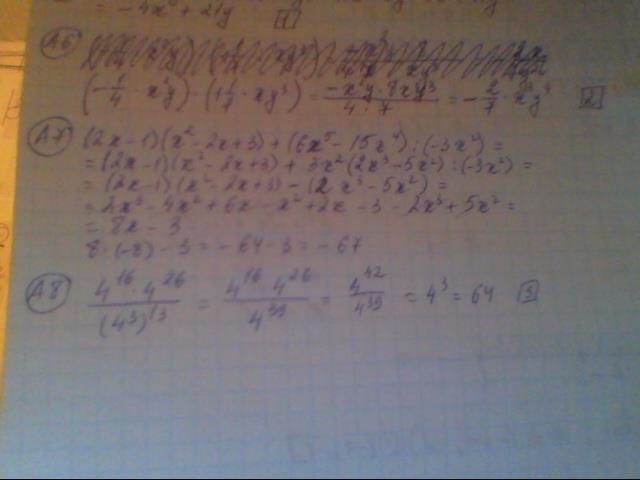 = -4x⁶ + 21y [1]
A6
(-1/4 · x²y) · (1 1/7 · xy³) = (-x²y · 8xy³)/(4 · 7) = -2/7 · x³y⁴ [2]
A7 (2x-1)(x²-2x+3) + (6x⁵-15x⁴) : (-3x²) =
= (2x-1)(x²-2x+3) + 3x²(2x³-5x²) : (-3x²) =
= (2x-1)(x²-2x+3) - (2x³-5x²) =
= 2x³ - 4x² + 6x - x² + 2x - 3 - 2x³ + 5x² =
= 8x - 3
8 · (-8) - 3 = -64 - 3 = -67
A8 (4¹⁶ · 4²⁶)/(4³)¹³ = (4¹⁶ · 4²⁶)/4³⁹ = 4⁴²/4³⁹ = 4³ = 64 [3]